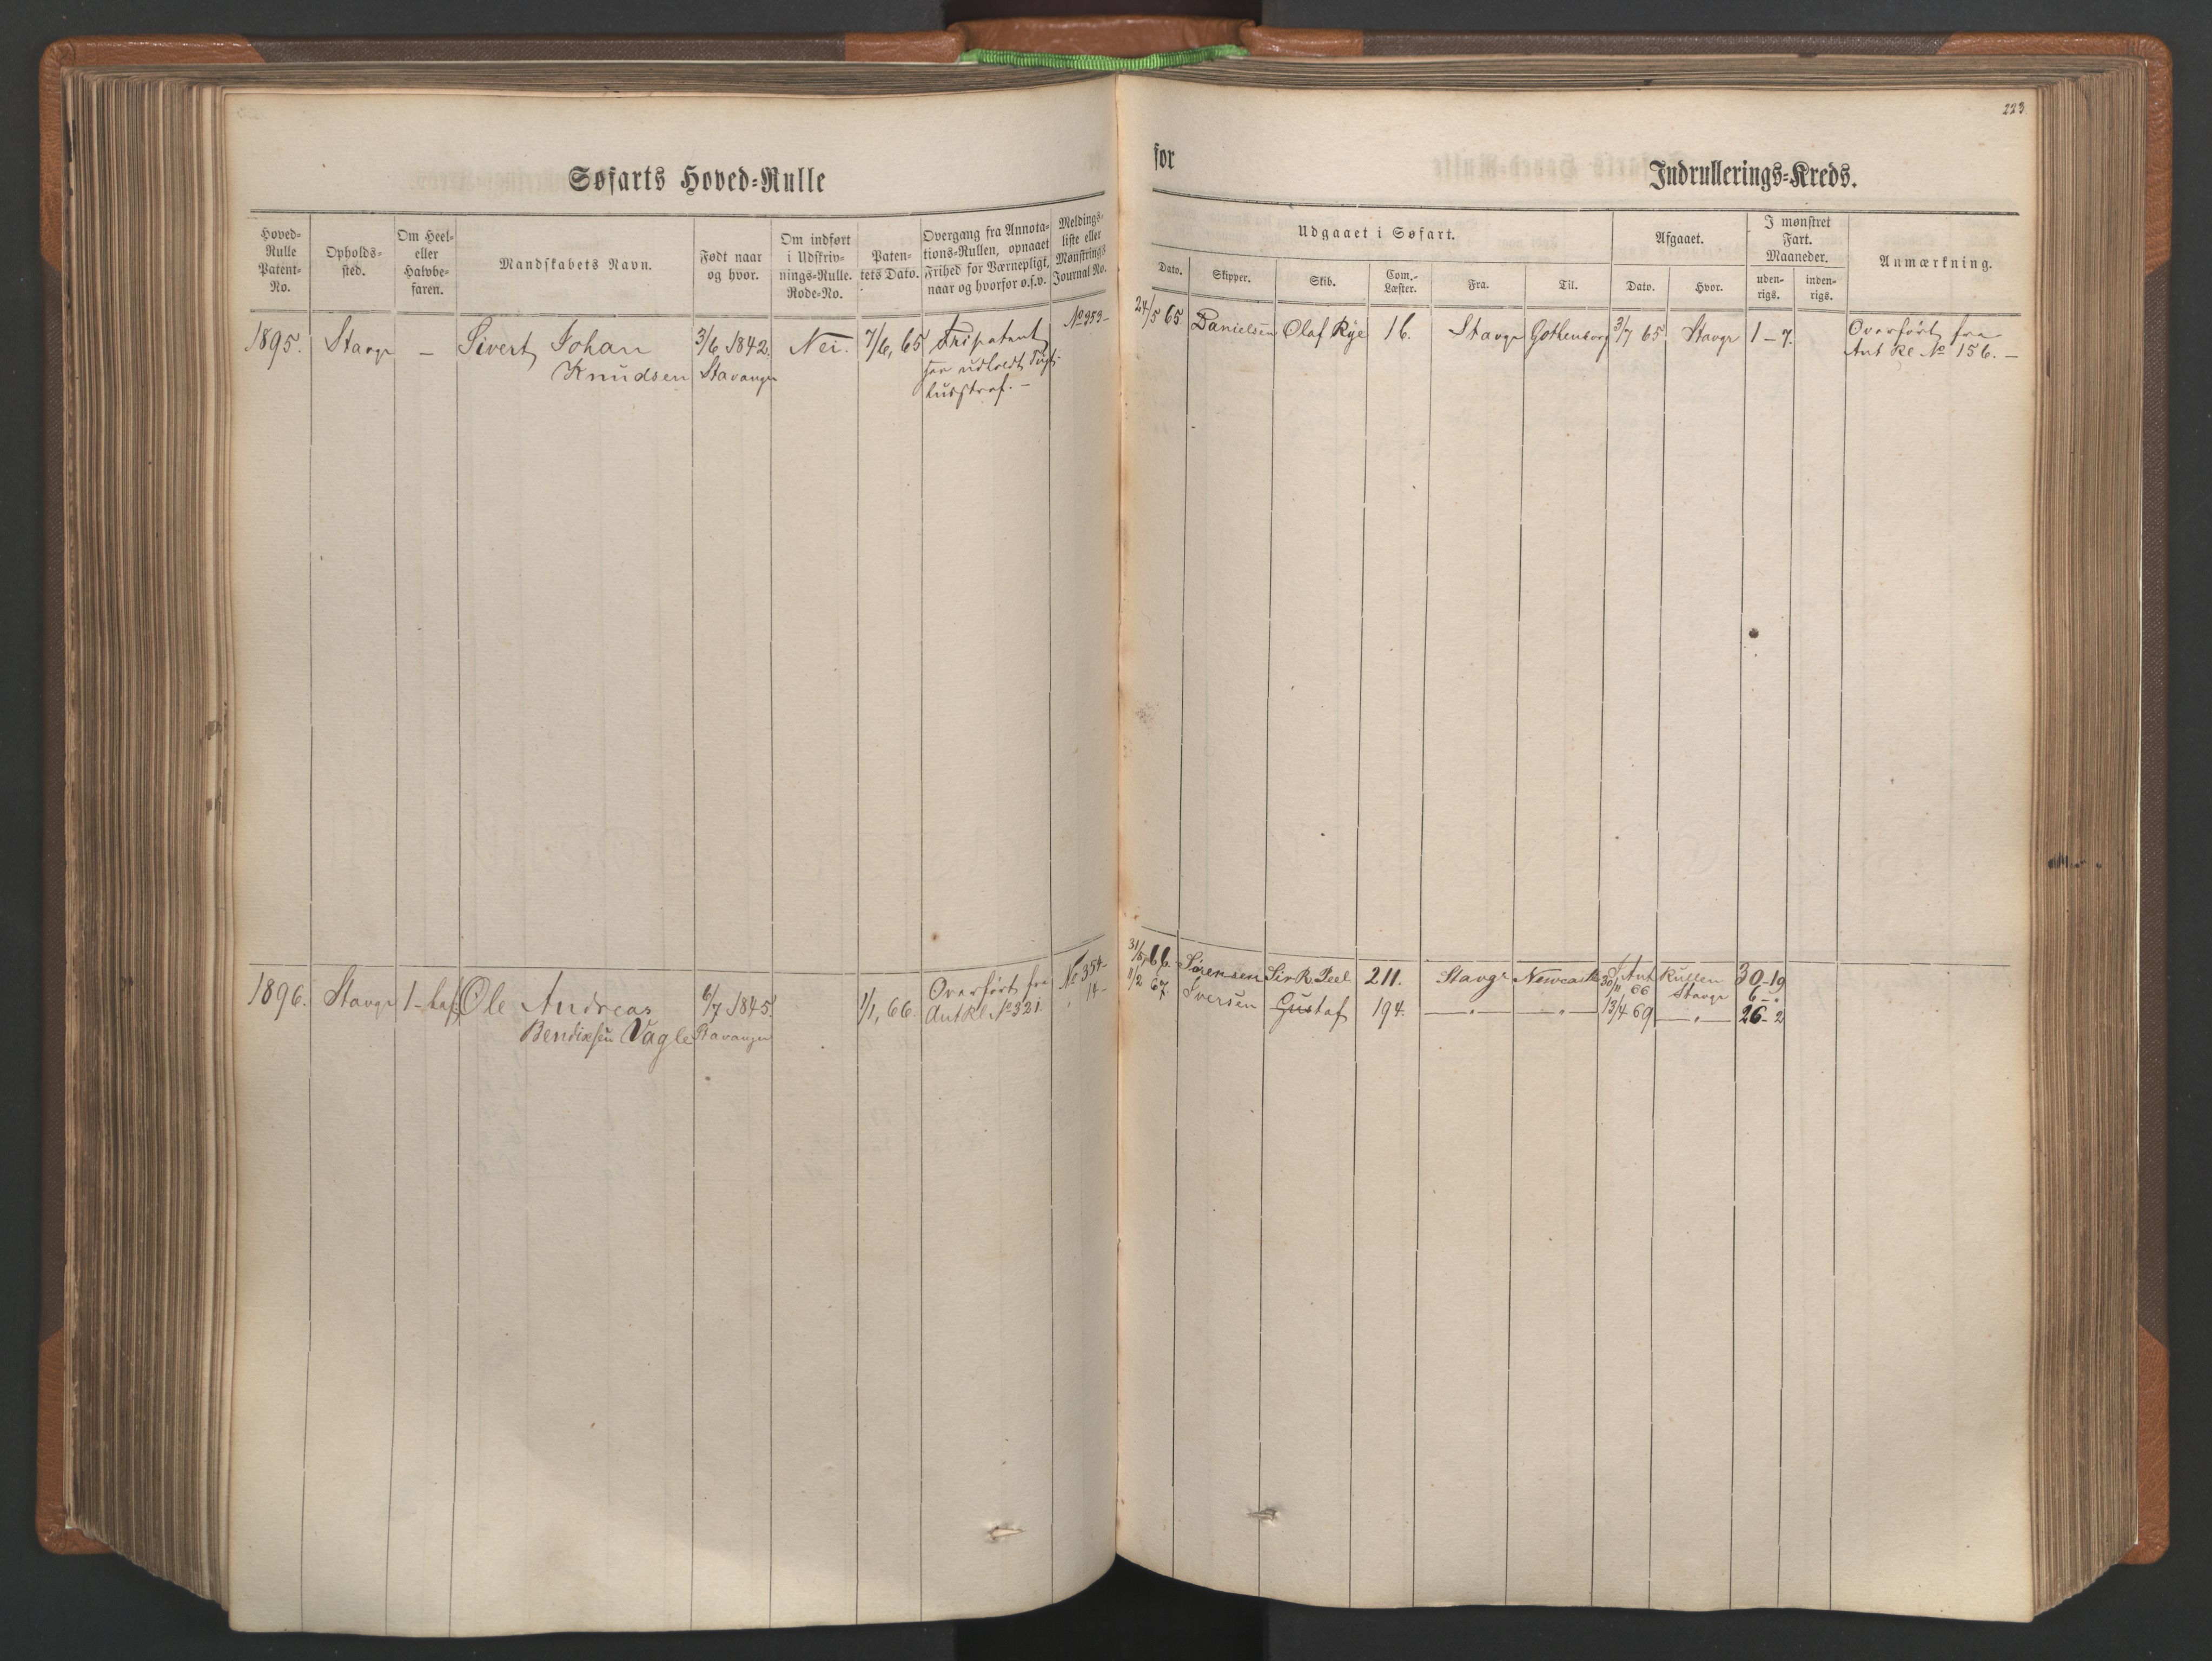 223
Søfarts Hoved-Rulle
for
Indrullerings-Kreds.
Hoved-
Rulle
Patent-
No.
Opholds-
sted.
Om Heel-
eller
Halvbe-
faren.
Mandskabets Navn.
Født naar
og hvor.
Om indført
i Udskriv-
nings-Rulle.
Rode-No.
Paten-
tets Dato.
Overgang fra Annota-
tions-Rullen, opnaaet
Frihed for Værnepligt,
naar og hvorfor o.s.v.
Meldings-
liste eller
Mønstrings
Journal No.
Udgaaet i Søfart.
Dato.
Skipper.
Skib.
Com.-
Læster.
Fra.
Til.
Afgaaet.
Dato.
Hvor.
I mønstret
Fart.
Maaneder.
uden-
rigs.
inden-
rigs.
Anmærkning.
1895. Stavgr — Sivert Johan 3/6 1842. Nei. 7/6, 65 Fripatent No 353-
Knudsen Stavanger har udholdt Tugt-
husstraf. —
24/5 65. Danielsen Olaf Rye 16. Stavgr Gothenborg 3/7 65 Stavgr 1-7. Overført fra
Ant Rl No 156. —
1896. Stavgr 1- Ole Andreas 6/7 1845. 1/1, 66. Overført fra No 354-
Bendixsen Vagle Stavanger Ant Rl No 321. " 14-
31/5 66. Sørensen Sir R. Peel 211. Stavgr Newcastle Ant Rullen 30-19
30/11 66 Stavgr 6-"
11/2 67. Iversen Gustaf 194. —"— —"— 13/4 69 —"— 26-2